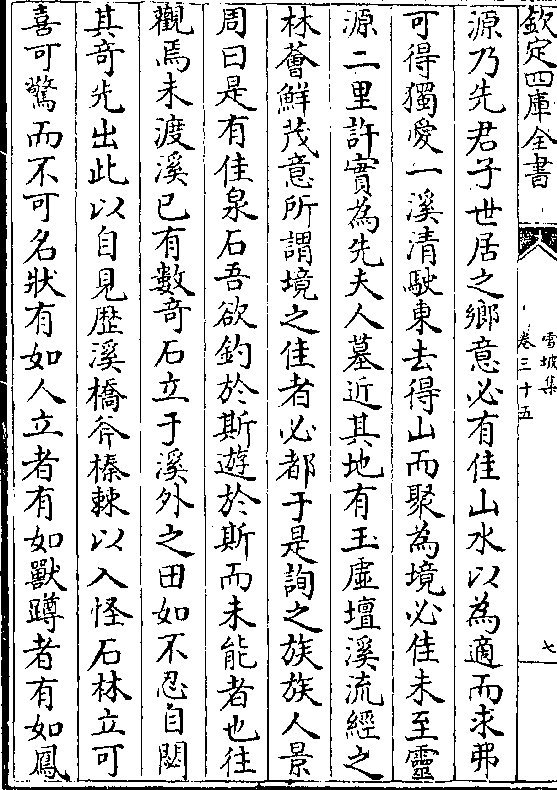 欽定四庫全書
雪坡集
卷三十五
七
源乃先君子世居之鄉意必有佳山水以為適而求弗
可得獨愛一溪清駛東去得山而聚為境必佳未至靈
源二里許實為先夫人墓近其地有玉虛壇溪流經之
林薈鮮茂意所謂境之佳者必都于是詢之族族人景
周曰是有佳泉石吾欲釣於斯遊於斯而未能者也往
觀焉未渡溪已有數奇石立于溪外之田如不忍自閟
其奇先出此以自見歴溪橋斧榛棘以入怪石林立可
喜可驚而不可名狀有如人立者有如獸蹲者有如鳳